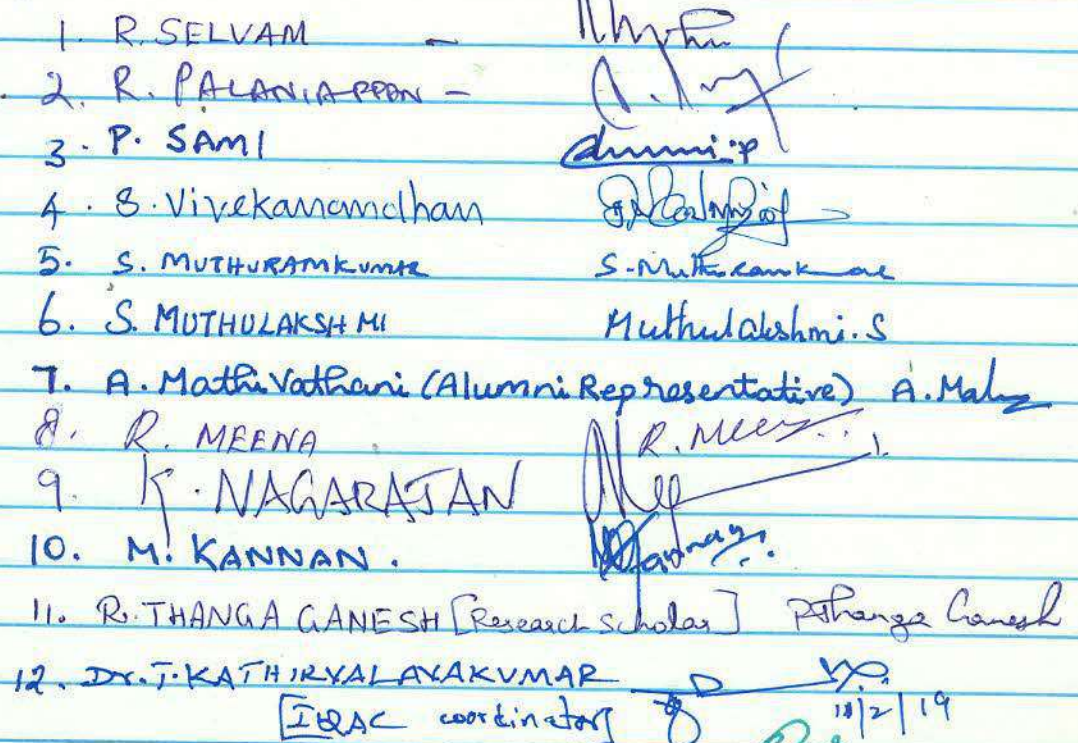 1. R. SELVAM -
2. R. PALANIAPPAN -
3. P. SAMI
4. S. Vivekanandhan
5. S. MUTHURAMKUMAR S. Muthuramkumar
6. S. MUTHULAKSHMI Muthulakshmi. S
7. A. Mathivathani (Alumni Representative) A.
8. R. MEENA R.
9. K. NAGARAJAN
10. M. KANNAN.
11. R. THANGA GANESH [Research Scholar] R Thanga Ganesh
12. Dr. T. KATHIRVALAVAKUMAR
[IQAC coordinator] 18/2/19